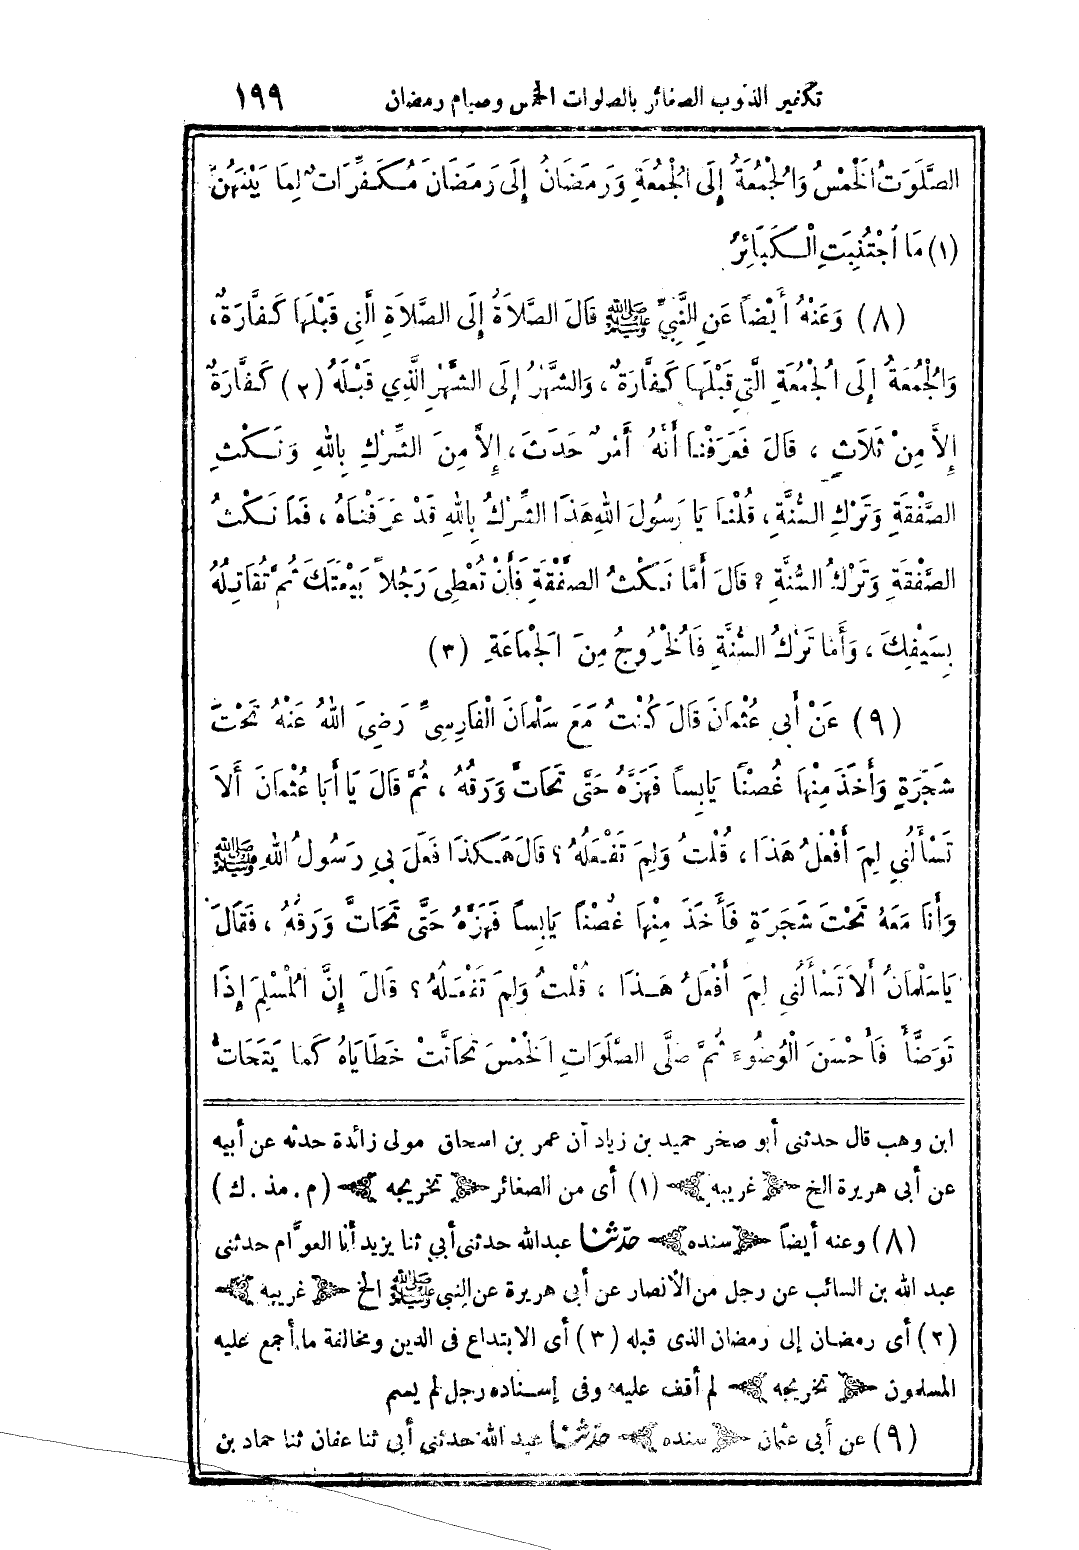 تكفير الذنوب الصغائر بالصلوات الخمس وصيام رمضان ١٩٩
الصَّلَوَاتُ الْخَمْسُ وَالْجُمُعَةُ إِلَى الْجُمُعَةِ وَرَمَضَانُ إِلَى رَمَضَانَ مُكَفِّرَاتٌ لِمَا بَيْنَهُنَّ
(١) مَا اجْتُنِبَتِ الْكَبَائِرُ
(٨) وَعَنْهُ أَيْضاً عَنِ النَّبِيِّ ﷺ قَالَ الصَّلَاةُ إِلَى الصَّلَاةِ الَّتِي قَبْلَهَا كَفَّارَةٌ،
وَالْجُمُعَةُ إِلَى الْجُمُعَةِ الَّتِي قَبْلَهَا كَفَّارَةٌ، وَالشَّهْرُ إِلَى الشَّهْرِ الَّذِي قَبْلَهُ (٢) كَفَّارَةٌ
إِلَّا مِنْ ثَلَاثٍ، قَالَ فَعَرَفْنَا أَنَّهُ أَمْرٌ حَدَثَ، إِلَّا مِنَ الشِّرْكِ بِاللهِ وَنَكْثِ
الصَّفْقَةِ وَتَرْكِ السُّنَّةِ، قُلْنَا يَا رَسُولَ اللهِ هَذَا الشِّرْكُ بِاللهِ قَدْ عَرَفْنَاهُ، فَمَا نَكْثُ
الصَّفْقَةِ وَتَرْكُ السُّنَّةِ ؟ قَالَ أَمَّا نَكْثُ الصَّفْقَةِ فَأَنْ تُعْطِيَ رَجُلاً بَيْعَتَكَ ثُمَّ تُقَاتِلُهُ
بِسَيْفِكَ، وَأَمَّا تَرْكُ السُّنَّةِ فَالْخُرُوجُ مِنَ الْجَمَاعَةِ (٣)
(٩) عَنْ أَبِي عُثْمَانَ قَالَ كُنْتُ مَعَ سَلْمَانَ الْفَارِسِيِّ رَضِيَ اللهُ عَنْهُ تَحْتَ
شَجَرَةٍ وَأَخَذَ مِنْهَا غُصْنًا يَابِساً فَهَزَّهُ حَتَّى تَحَاتَّ وَرَقُهُ، ثُمَّ قَالَ يَا أَبَا عُثْمَانَ أَلَا
تَسْأَلُنِي لِمَ أَفْعَلُ هَذَا، قُلْتُ وَلِمَ تَفْعَلُهُ ؟ قَالَ هَكَذَا فَعَلَ بِي رَسُولُ اللهِ ﷺ
وَأَنَا مَعَهُ تَحْتَ شَجَرَةٍ فَأَخَذَ مِنْهَا غُصْنًا يَابِساً فَهَزَّهُ حَتَّى تَحَاتَّ وَرَقُهُ، فَقَالَ
يَا سَلْمَانُ أَلَا تَسْأَلُنِي لِمَ أَفْعَلُ هَذَا، قُلْتُ وَلِمَ تَفْعَلُهُ ؟ قَالَ إِنَّ الْمُسْلِمَ إِذَا
تَوَضَّأَ فَأَحْسَنَ الْوُضُوءَ ثُمَّ صَلَّى الصَّلَوَاتِ الْخَمْسَ تَحَاتَّتْ خَطَايَاهُ كَمَا يَتَحَاتُّ
ابن وهب قال حدثنى أبو صخر حميد بن زياد أن عمر بن اسحاق مولى زائدة حدثه عن أبيه
عن أبى هريرة الخ غريبه (١) أى من الصغائر تخريجه (م. مذ. ك)
(٨) وعنه أيضاً سنده حدّثنا عبدالله حدثنى أبي ثنا يزيد أنا العوَّام حدثنى
عبد الله بن السائب عن رجل من الأنصار عن أبى هريرة عن النبي ﷺ الخ غريبه
(٢) أى رمضان إلى رمضان الذى قبله (٣) أى الابتداع فى الدين ومخالفة ما أجمع عليه
المسلمون تخريجه لم أقف عليه وفى إسناده رجل لم يسم
(٩) عن أبى عثمان سنده حدّثنا عبد الله حدثنى أبى ثنا عفان ثنا حماد بن